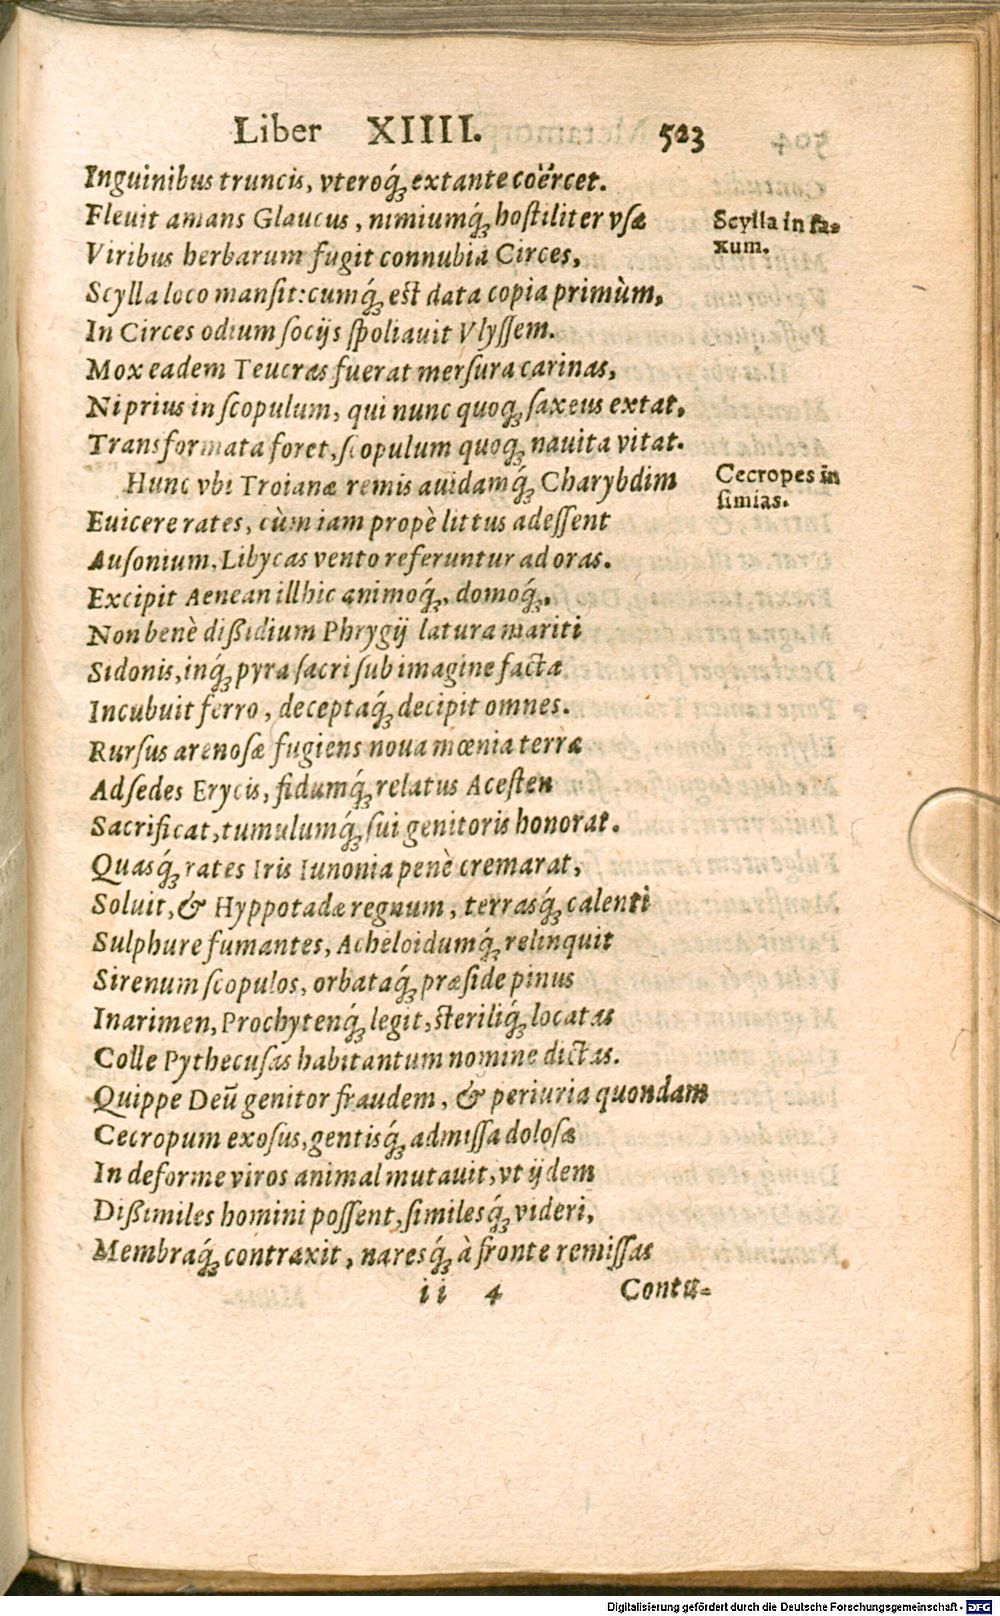 Liber XIIII. 523
Inguinibus truncis, vteroq́; extante coërcet.
Fleuit amans Glaucus, nimiumq́; hostiliter vsæ
Scylla in sa-
xum.
Viribus herbarum fugit connubia Circes,
Scylla loco mansit: cumq́; est data copia primùm,
In Circes odium socijs spoliauit Vlyssem.
Mox eadem Teucras fuerat mersura carinas,
Ni prius in scopulum, qui nunc quoq; saxeus extat,
Transformata foret, scopulum quoq; nauita vitat.
Hunc vbi Troianæ remis auidamq́; Charybdim
Cecropes in
simias.
Euicere rates, cùm iam propè littus adessent
Ausonium, Libycas vento referuntur ad oras.
Excipit Aenean illhic animoq́;, domoq́;,
Non benè dißidium Phrygij latura mariti
Sidonis, inq́; pyra sacri sub imagine facta
Incubuit ferro, deceptaq́; decipit omnes.
Rursus arenosæ fugiens noua mœnia terræ
Ad sedes Erycis, fidumq́; relatus Acesten
Sacrificat, tumulumq́; sui genitoris honorat.
Quasq́; rates Iris Iunonia penè cremarat,
Soluit, & Hyppotadæ regnum, terrasq́; calenti
Sulphure fumantes, Acheloidumq́; relinquit
Sirenum scopulos, orbataq́; præside pinus
Inarimen, Prochytenq́; legit, steriliq́; locatas
Colle Pythecusas habitantum nomine dictas.
Quippe Deũ genitor fraudem, & periuria quondam
Cecropum exosus, gentisq́; admissa dolosæ
In deforme viros animal mutauit, vt ijdem
Dißimiles homini possent, similesq́; videri,
Membraq́; contraxit, naresq́; à fronte remissas
ii 4 Contu-
Digitalisierung gefördert durch die Deutsche Forschungsgemeinschaft - DFG